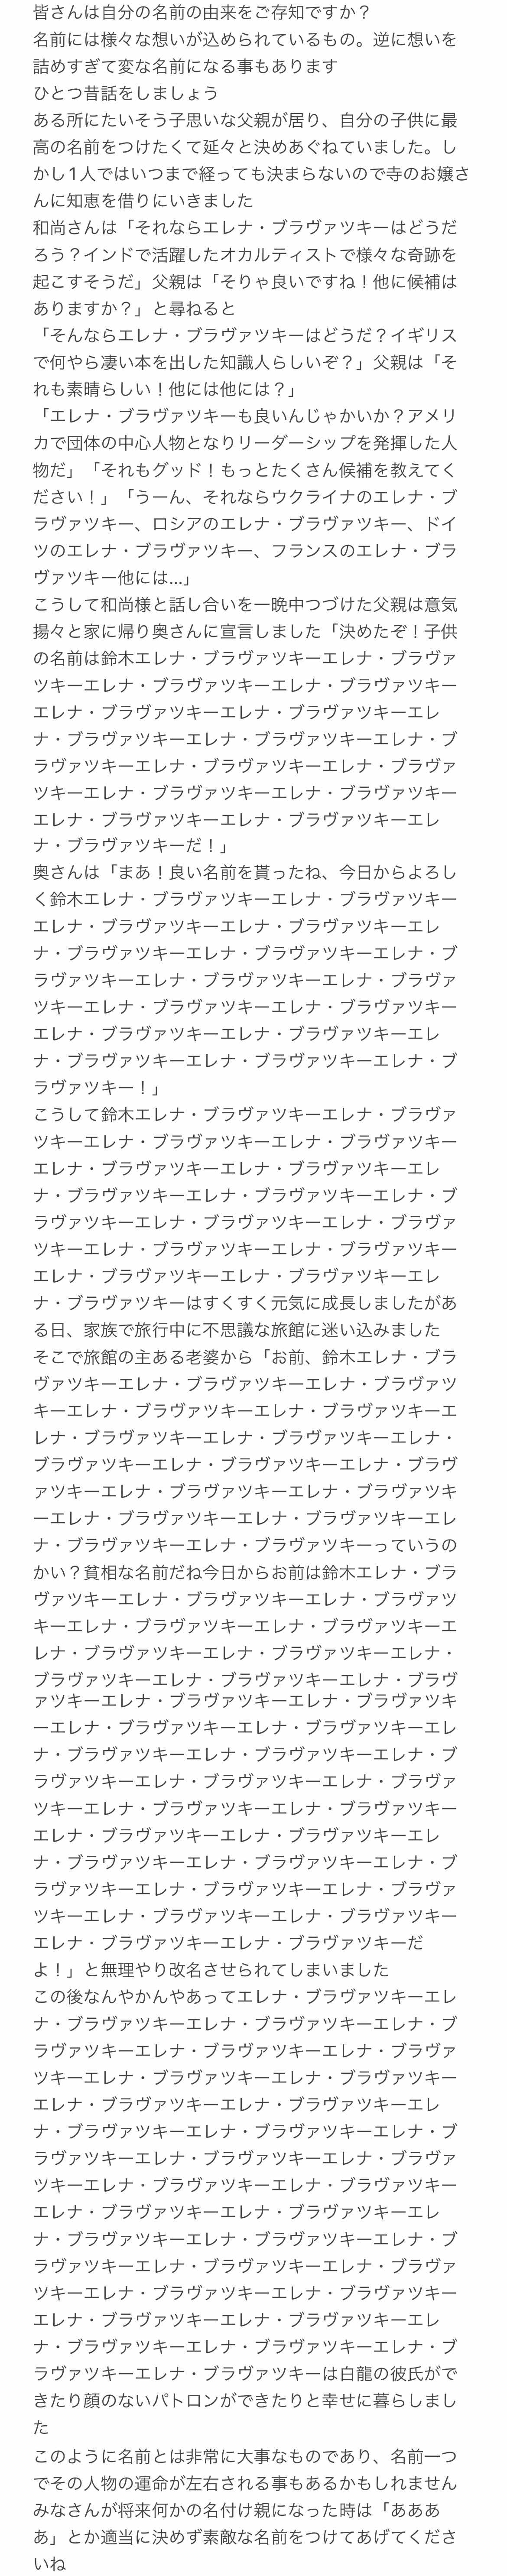 皆さんは自分の名前の由来をご存知ですか？
名前には様々な想いが込められているもの。逆に想いを
詰めすぎて変な名前になる事もあります
ひとつ昔話をしましょう
ある所にたいそう子思いな父親が居り、自分の子供に最
高の名前をつけたくて延々と決めあぐねていました。し
かし1人ではいつまで経っても決まらないので寺のお嬢さ
んに知恵を借りにいきました
和尚さんは「それならエレナ・ブラヴァツキーはどうだ
ろう？インドで活躍したオカルティストで様々な奇跡を
起こすそうだ」父親は「そりゃ良いですね！他に候補は
ありますか？」と尋ねると
「そんならエレナ・ブラヴァツキーはどうだ？イギリス
で何やら凄い本を出した知識人らしいぞ？」父親は「そ
れも素晴らしい！他には他には？」
「エレナ・ブラヴァツキーも良いんじゃかいか？アメリ
カで団体の中心人物となりリーダーシップを発揮した人
物だ」「それもグッド！もっとたくさん候補を教えてく
ださい！」「うーん、それならウクライナのエレナ・ブ
ラヴァツキー、ロシアのエレナ・ブラヴァツキー、ドイ
ツのエレナ・ブラヴァツキー、フランスのエレナ・ブラ
ヴァツキー他には…」
こうして和尚様と話し合いを一晩中つづけた父親は意気
揚々と家に帰り奥さんに宣言しました「決めたぞ！子供
の名前は鈴木エレナ・ブラヴァツキーエレナ・ブラヴァ
ツキーエレナ・ブラヴァツキーエレナ・ブラヴァツキー
エレナ・ブラヴァツキーエレナ・ブラヴァツキーエレ
ナ・ブラヴァツキーエレナ・ブラヴァツキーエレナ・ブ
ラヴァツキーエレナ・ブラヴァツキーエレナ・ブラヴァ
ツキーエレナ・ブラヴァツキーエレナ・ブラヴァツキー
エレナ・ブラヴァツキーエレナ・ブラヴァツキーエレ
ナ・ブラヴァツキーだ！」
奥さんは「まあ！良い名前を貰ったね、今日からよろし
く鈴木エレナ・ブラヴァツキーエレナ・ブラヴァツキー
エレナ・ブラヴァツキーエレナ・ブラヴァツキーエレ
ナ・ブラヴァツキーエレナ・ブラヴァツキーエレナ・ブ
ラヴァツキーエレナ・ブラヴァツキーエレナ・ブラヴァ
ツキーエレナ・ブラヴァツキーエレナ・ブラヴァツキー
エレナ・ブラヴァツキーエレナ・ブラヴァツキーエレ
ナ・ブラヴァツキーエレナ・ブラヴァツキーエレナ・ブ
ラヴァツキー！」
こうして鈴木エレナ・ブラヴァツキーエレナ・ブラヴァ
ツキーエレナ・ブラヴァツキーエレナ・ブラヴァツキー
エレナ・ブラヴァツキーエレナ・ブラヴァツキーエレ
ナ・ブラヴァツキーエレナ・ブラヴァツキーエレナ・ブ
ラヴァツキーエレナ・ブラヴァツキーエレナ・ブラヴァ
ツキーエレナ・ブラヴァツキーエレナ・ブラヴァツキー
エレナ・ブラヴァツキーエレナ・ブラヴァツキーエレ
ナ・ブラヴァツキーはすくすく元気に成長しましたがあ
る日、家族で旅行中に不思議な旅館に迷い込みました
そこで旅館の主ある老婆から「お前、鈴木エレナ・ブラ
ヴァツキーエレナ・ブラヴァツキーエレナ・ブラヴァツ
キーエレナ・ブラヴァツキーエレナ・ブラヴァツキーエ
レナ・ブラヴァツキーエレナ・ブラヴァツキーエレナ・
ブラヴァツキーエレナ・ブラヴァツキーエレナ・ブラヴ
ァツキーエレナ・ブラヴァツキーエレナ・ブラヴァツキ
ーエレナ・ブラヴァツキーエレナ・ブラヴァツキーエレ
ナ・ブラヴァツキーエレナ・ブラヴァツキーっていうの
かい？貧相な名前だね今日からお前は鈴木エレナ・ブラ
ヴァツキーエレナ・ブラヴァツキーエレナ・ブラヴァツ
キーエレナ・ブラヴァツキーエレナ・ブラヴァツキーエ
レナ・ブラヴァツキーエレナ・ブラヴァツキーエレナ・
ブラヴァツキーエレナ・ブラヴァツキーエレナ・ブラヴ
ァツキーエレナ・ブラヴァツキーエレナ・ブラヴァツキ
ーエレナ・ブラヴァツキーエレナ・ブラヴァツキーエレ
ナ・ブラヴァツキーエレナ・ブラヴァツキーエレナ・ブ
ラヴァツキーエレナ・ブラヴァツキーエレナ・ブラヴァ
ツキーエレナ・ブラヴァツキーエレナ・ブラヴァツキー
エレナ・ブラヴァツキーエレナ・ブラヴァツキーエレ
ナ・ブラヴァツキーエレナ・ブラヴァツキーエレナ・ブ
ラヴァツキーエレナ・ブラヴァツキーエレナ・ブラヴァ
ツキーエレナ・ブラヴァツキーエレナ・ブラヴァツキー
エレナ・ブラヴァツキーエレナ・ブラヴァツキーだ
よ！」と無理やり改名させられてしまいました
この後なんやかんやあってエレナ・ブラヴァツキーエレ
ナ・ブラヴァツキーエレナ・ブラヴァツキーエレナ・ブ
ラヴァツキーエレナ・ブラヴァツキーエレナ・ブラヴァ
ツキーエレナ・ブラヴァツキーエレナ・ブラヴァツキー
エレナ・ブラヴァツキーエレナ・ブラヴァツキーエレ
ナ・ブラヴァツキーエレナ・ブラヴァツキーエレナ・ブ
ラヴァツキーエレナ・ブラヴァツキーエレナ・ブラヴァ
ツキーエレナ・ブラヴァツキーエレナ・ブラヴァツキー
エレナ・ブラヴァツキーエレナ・ブラヴァツキーエレ
ナ・ブラヴァツキーエレナ・ブラヴァツキーエレナ・ブ
ラヴァツキーエレナ・ブラヴァツキーエレナ・ブラヴァ
ツキーエレナ・ブラヴァツキーエレナ・ブラヴァツキー
エレナ・ブラヴァツキーエレナ・ブラヴァツキーエレ
ナ・ブラヴァツキーエレナ・ブラヴァツキーエレナ・ブ
ラヴァツキーエレナ・ブラヴァツキーは白龍の彼氏がで
きたり顔のないパトロンができたりと幸せに暮らしまし
た
このように名前とは非常に大事なものであり、名前一つ
でその人物の運命が左右される事もあるかもしれません
みなさんが将来何かの名付け親になった時は「あああ
あ」とか適当に決めず素敵な名前をつけてあげてくださ
いね